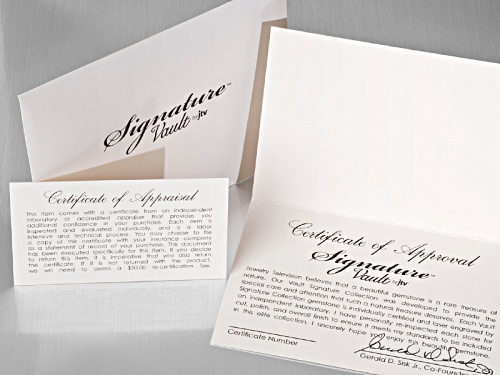 Signature™
Vault by jtv
Certificate of Appraisal
This item comes with a certificate from an independent
laboratory or accredited appraiser that provides you
additional confidence in your purchase. Each item is
inspected and evaluated individually, and is a labor
intensive and technical process. You may choose to file
a copy of this certificate with your insurance company
as a statement of record of your purchase. This document
has been executed specifically for this item. If you decide
to return this item, it is imperative that you also return
the certificate. If it is not returned with the product,
we will need to assess a $50.00 re-certification fee.
Certificate of Approval
Signature™
Vault by jtv
Jewelry Television believes that a beautiful gemstone is a rare treasure of
nature. Our Vault Signature Collection was developed to provide the
special care and attention that such a natural treasure deserves. Each Vault
Signature Collection gemstone is individually certified and laser engraved by
an independent laboratory. I have personally re-inspected each gemstone
cut, polish, and overall finish to ensure it meets my standards to be included
in this elite collection. I sincerely hope you enjoy this beautiful gemstone.
Certificate Number
Gerald D. Sisk Jr., Co-Founder